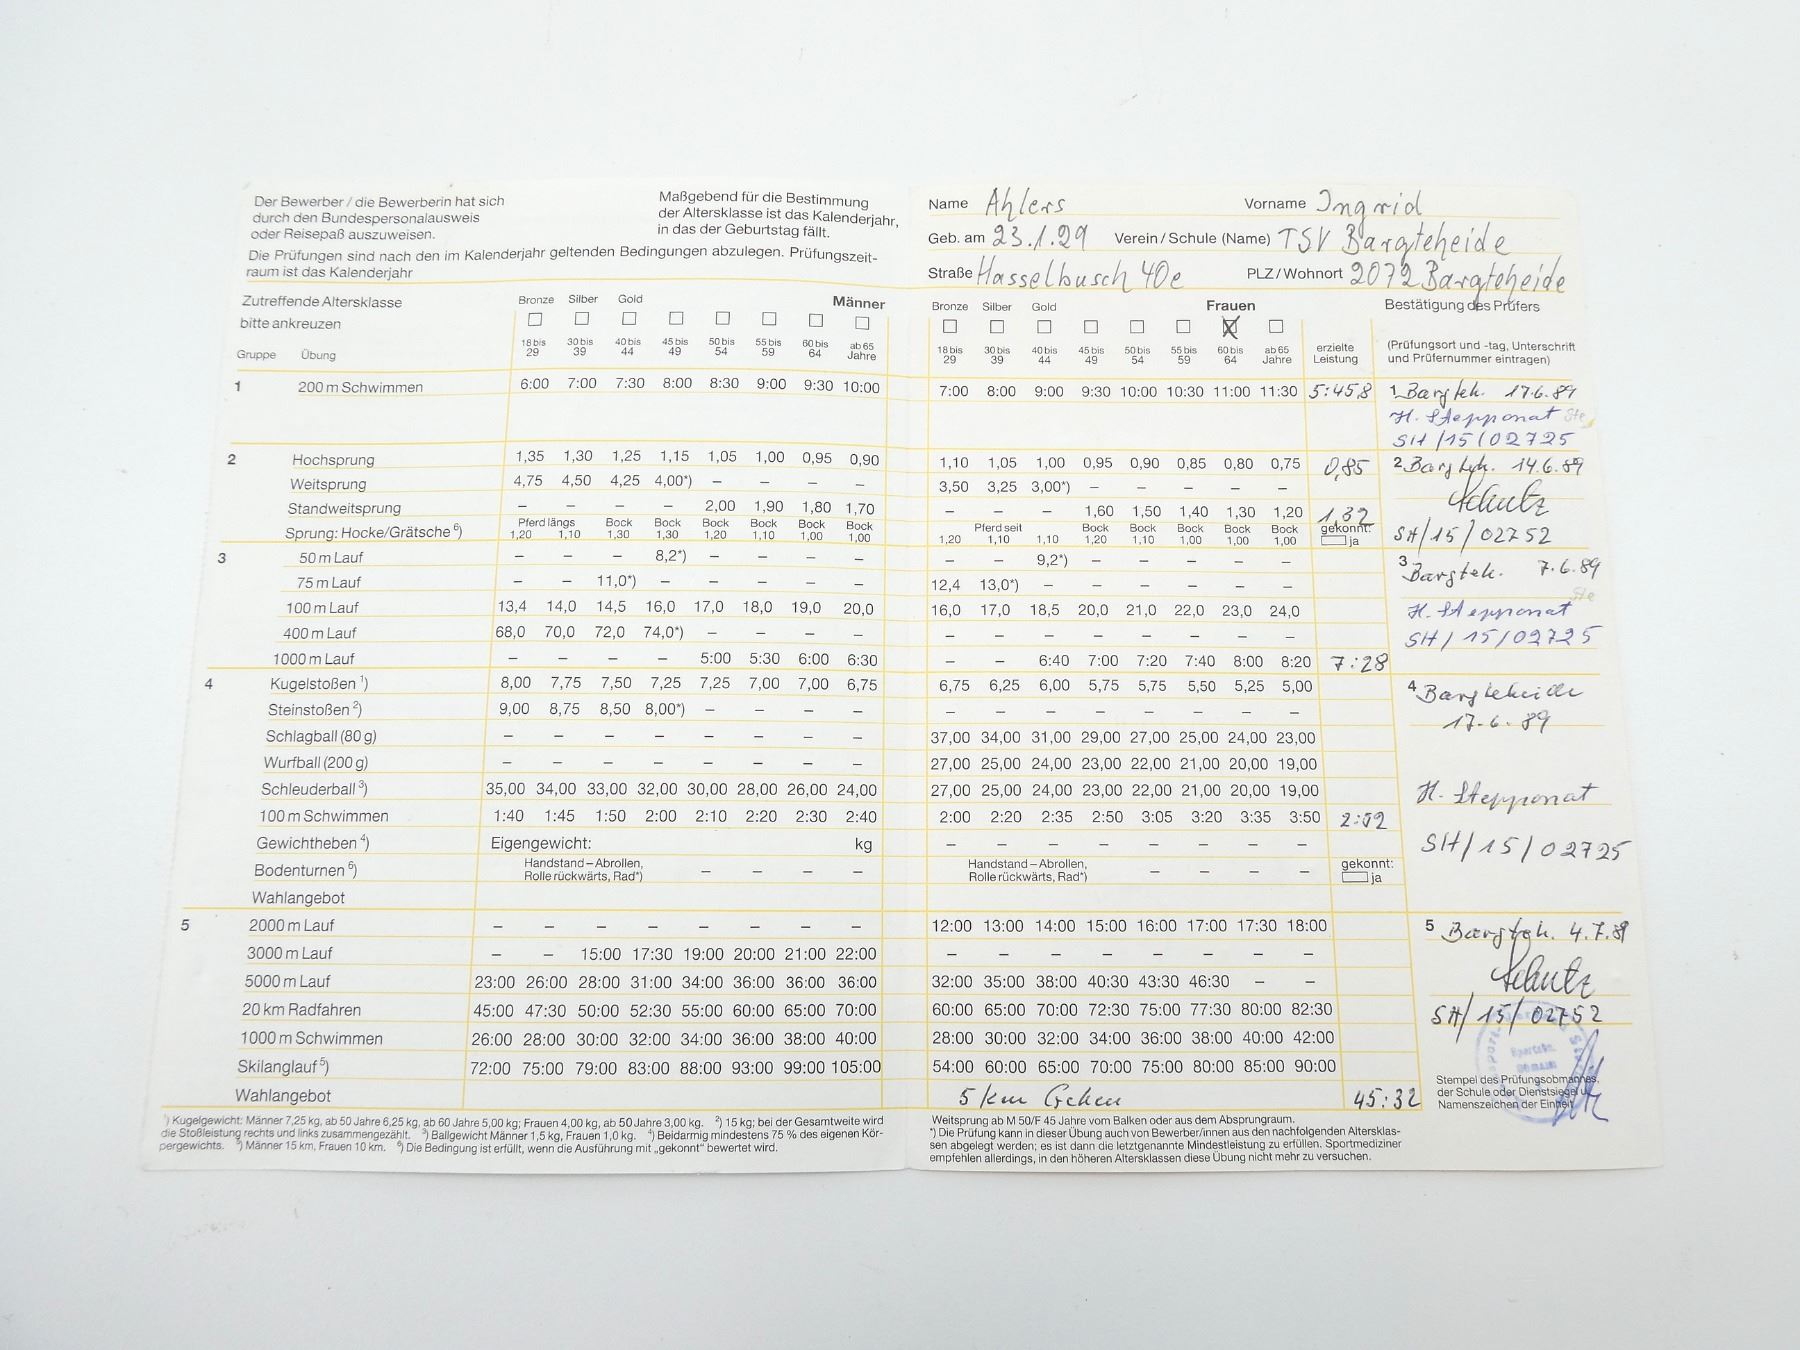 Der Bewerber / die Bewerberin hat sich
durch den Bundespersonalausweis
oder Reisepaß auszuweisen.
Maßgebend für die Bestimmung
der Altersklasse ist das Kalenderjahr,
in das der Geburtstag fällt.
Die Prüfungen sind nach den im Kalenderjahr geltenden Bedingungen abzulegen. Prüfungszeit-
raum ist das Kalenderjahr
Zutreffende Altersklasse Bronze Silber Gold Männer
bitte ankreuzen
Gruppe Übung 18 bis 29 30 bis 39 40 bis 44 45 bis 49 50 bis 54 55 bis 59 60 bis 64 ab 65 Jahre
1 200 m Schwimmen 6:00 7:00 7:30 8:00 8:30 9:00 9:30 10:00
2 Hochsprung 1,35 1,30 1,25 1,15 1,05 1,00 0,95 0,90
Weitsprung 4,75 4,50 4,25 4,00*) – – – –
Standweitsprung – – – – 2,00 1,90 1,80 1,70
Sprung: Hocke/Grätsche 6) Pferd längs 1,20 1,10 Bock 1,30 Bock 1,30 Bock 1,20 Bock 1,10 Bock 1,00 Bock 1,00
3 50 m Lauf – – – 8,2*) – – – –
75 m Lauf – – 11,0*) – – – – –
100 m Lauf 13,4 14,0 14,5 16,0 17,0 18,0 19,0 20,0
400 m Lauf 68,0 70,0 72,0 74,0*) – – – –
1000 m Lauf – – – – 5:00 5:30 6:00 6:30
4 Kugelstoßen 1) 8,00 7,75 7,50 7,25 7,25 7,00 7,00 6,75
Steinstoßen 2) 9,00 8,75 8,50 8,00*) – – – –
Schlagball (80 g) – – – – – – – –
Wurfball (200 g) – – – – – – – –
Schleuderball 3) 35,00 34,00 33,00 32,00 30,00 28,00 26,00 24,00
100 m Schwimmen 1:40 1:45 1:50 2:00 2:10 2:20 2:30 2:40
Gewichtheben 4) Eigengewicht: kg
Bodenturnen 6) Handstand – Abrollen, – – – –
Rolle rückwärts, Rad*)
Wahlangebot
5 2000 m Lauf – – – – – – – –
3000 m Lauf – – 15:00 17:30 19:00 20:00 21:00 22:00
5000 m Lauf 23:00 26:00 28:00 31:00 34:00 36:00 36:00 36:00
20 km Radfahren 45:00 47:30 50:00 52:30 55:00 60:00 65:00 70:00
1000 m Schwimmen 26:00 28:00 30:00 32:00 34:00 36:00 38:00 40:00
Skilanglauf 5) 72:00 75:00 79:00 83:00 88:00 93:00 99:00 105:00
Wahlangebot
1) Kugelgewicht: Männer 7,25 kg, ab 50 Jahre 6,25 kg, ab 60 Jahre 5,00 kg; Frauen 4,00 kg, ab 50 Jahre 3,00 kg. 2) 15 kg; bei der Gesamtweite wird
die Stoßleistung rechts und links zusammengezählt. 3) Ballgewicht Männer 1,5 kg, Frauen 1,0 kg. 4) Beidarmig mindestens 75 % des eigenen Kör-
pergewichts. 5) Männer 15 km, Frauen 10 km. 6) Die Bedingung ist erfüllt, wenn die Ausführung mit „gekonnt" bewertet wird.
Name Ahlers Vorname Ingrid
Geb. am 23.1.29 Verein / Schule (Name) TSV Bargteheide
Straße Hasselbusch 40e PLZ / Wohnort 2072 Bargteheide
Bronze Silber Gold Frauen Bestätigung des Prüfers
18 bis 29 30 bis 39 40 bis 44 45 bis 49 50 bis 54 55 bis 59 60 bis 64 ab 65 Jahre erzielte Leistung
(Prüfungsort und -tag, Unterschrift
und Prüfernummer eintragen)
7:00 8:00 9:00 9:30 10:00 10:30 11:00 11:30 5:45,8
1 Bargteh. 17.6.89
H. Stepponat Ste
SH/15/02725
1,10 1,05 1,00 0,95 0,90 0,85 0,80 0,75 0,85
2 Bargteh. 14.6.89
3,50 3,25 3,00*) – – – – –
Schutz
– – – 1,60 1,50 1,40 1,30 1,20 1,32
Pferd seit 1,20 1,10 1,10 Bock 1,20 Bock 1,10 Bock 1,00 Bock 1,00 Bock 1,00 gekonnt: ja
SH/15/02752
– – 9,2*) – – – – –
3 Bargteh. 7.6.89
12,4 13,0*) – – – – – –
Ste
16,0 17,0 18,5 20,0 21,0 22,0 23,0 24,0
H. Stepponat
– – – – – – – –
SH/15/02725
– – 6:40 7:00 7:20 7:40 8:00 8:20 7:28
6,75 6,25 6,00 5,75 5,75 5,50 5,25 5,00
4 Bargteheide
– – – – – – – –
17.6.89
37,00 34,00 31,00 29,00 27,00 25,00 24,00 23,00
27,00 25,00 24,00 23,00 22,00 21,00 20,00 19,00
27,00 25,00 24,00 23,00 22,00 21,00 20,00 19,00
H. Stepponat
2:00 2:20 2:35 2:50 3:05 3:20 3:35 3:50 2:52
– – – – – – – –
SH/15/02725
Handstand – Abrollen, – – – – gekonnt:
Rolle rückwärts, Rad*) ja
12:00 13:00 14:00 15:00 16:00 17:00 17:30 18:00
5 Bargteh. 4.7.89
– – – – – – – –
32:00 35:00 38:00 40:30 43:30 46:30 – –
Schutz
60:00 65:00 70:00 72:30 75:00 77:30 80:00 82:30
SH/15/02752
28:00 30:00 32:00 34:00 36:00 38:00 40:00 42:00
54:00 60:00 65:00 70:00 75:00 80:00 85:00 90:00
5 km Gehen 45:32
Stempel des Prüfungsobmannes,
der Schule oder Dienstsiegel u.
Namenszeichen der Einheit
Weitsprung ab M 50/F 45 Jahre vom Balken oder aus dem Absprungraum.
*) Die Prüfung kann in dieser Übung auch von Bewerber/innen aus den nachfolgenden Altersklas-
sen abgelegt werden; es ist dann die letztgenannte Mindestleistung zu erfüllen. Sportmediziner
empfehlen allerdings, in den höheren Altersklassen diese Übung nicht mehr zu versuchen.